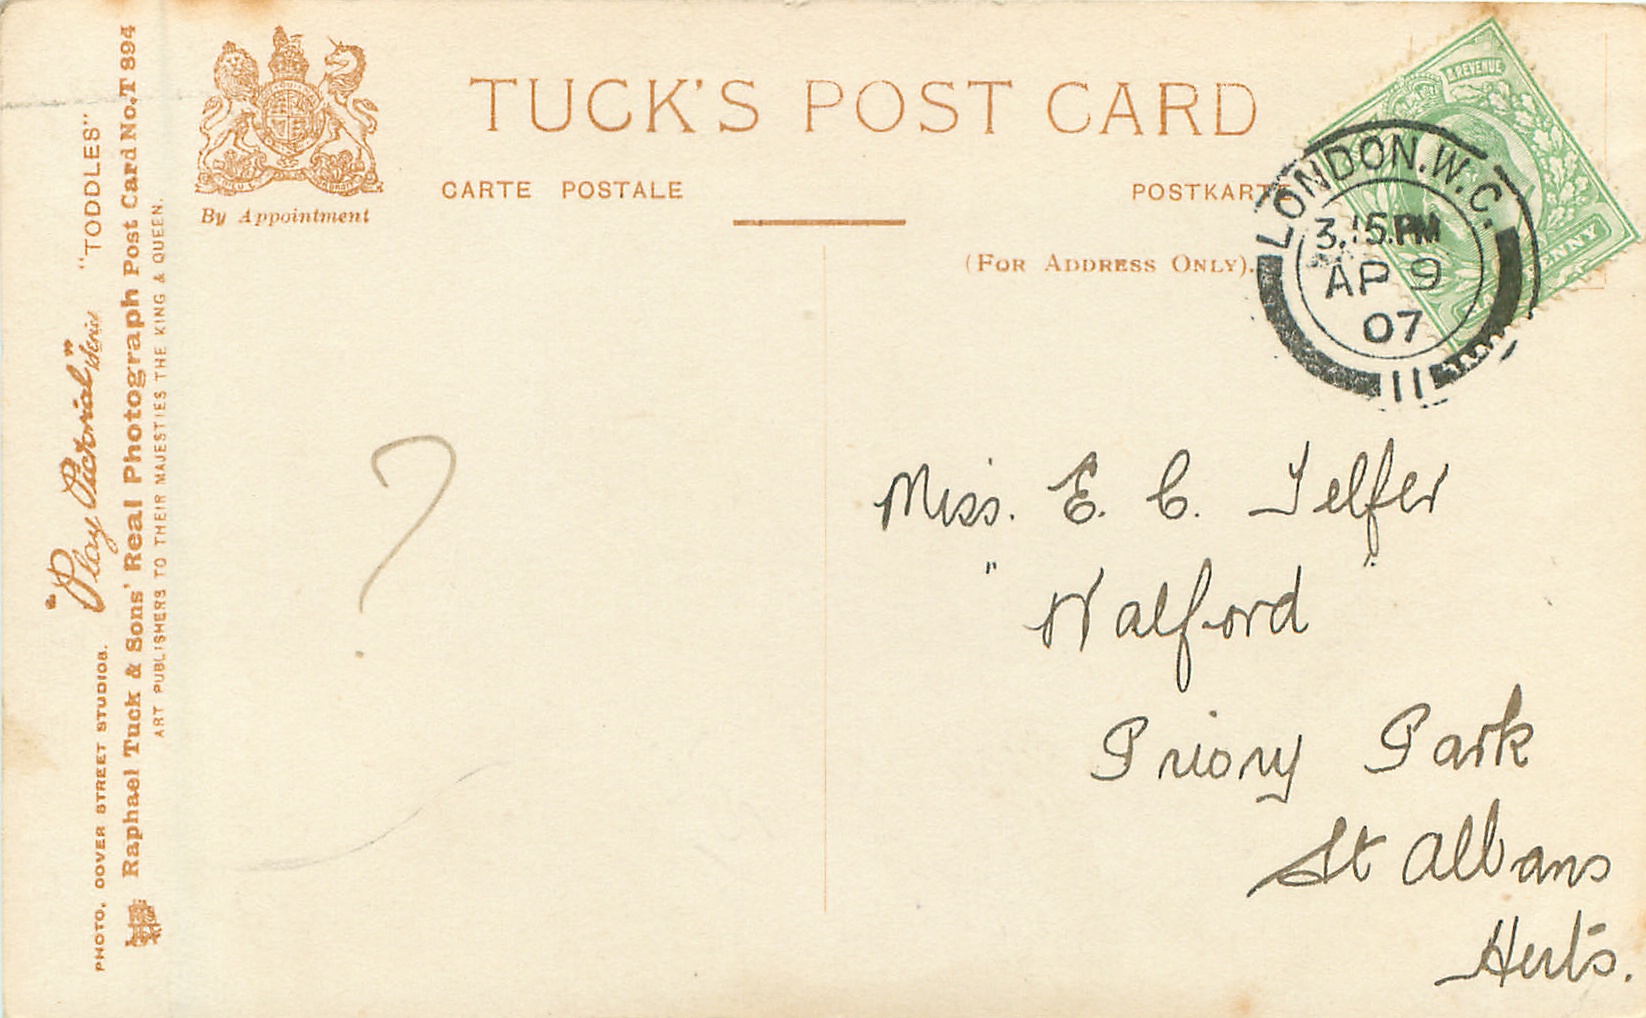 TUCK'S POST CARD
CARTE POSTALE
POSTKARTE
(FOR ADDRESS ONLY).
By Appointment
PHOTO. DOVER STREET STUDIOS. "Play Pictorial" Series "TODDLES"
Raphael Tuck & Sons' Real Photograph Post Card No. T 894
ART PUBLISHERS TO THEIR MAJESTIES THE KING & QUEEN.
& REVENUE
LONDON.W.C.
3.15.PM
AP 9
07
11
?
Miss. E. C. Telfer
" Walford "
Priory Park
St Albans
Herts.